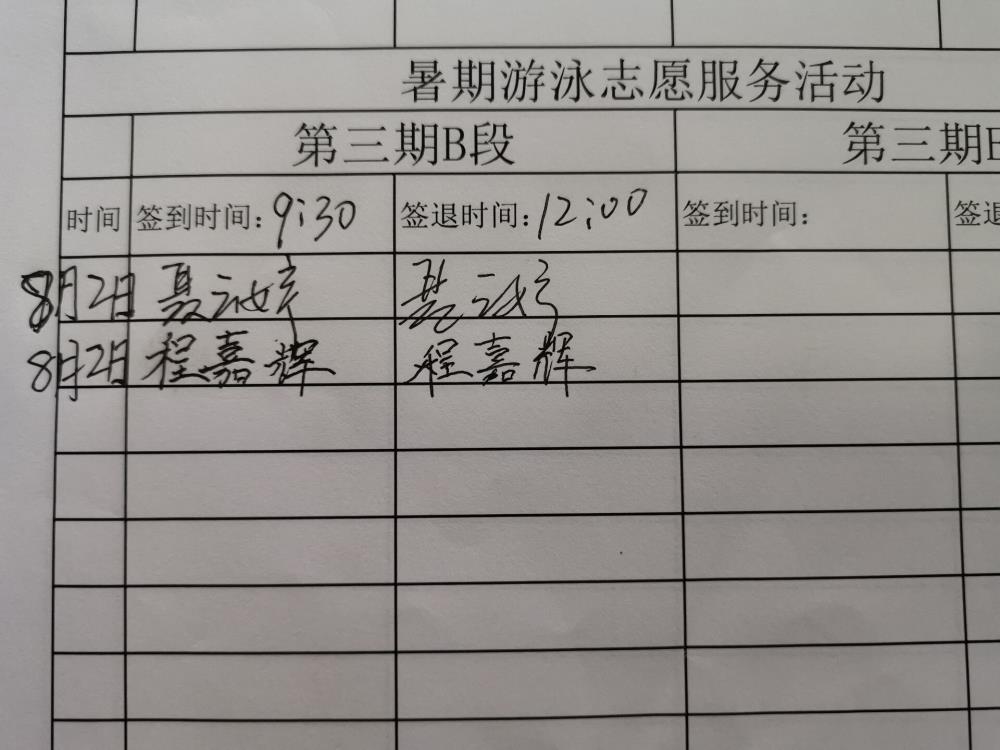 暑期游泳志愿服务活动
第三期B段 第三期
时间 签到时间：9:30 签退时间：12:00 签到时间： 签退
8月2日
8月2日 程嘉辉 程嘉辉